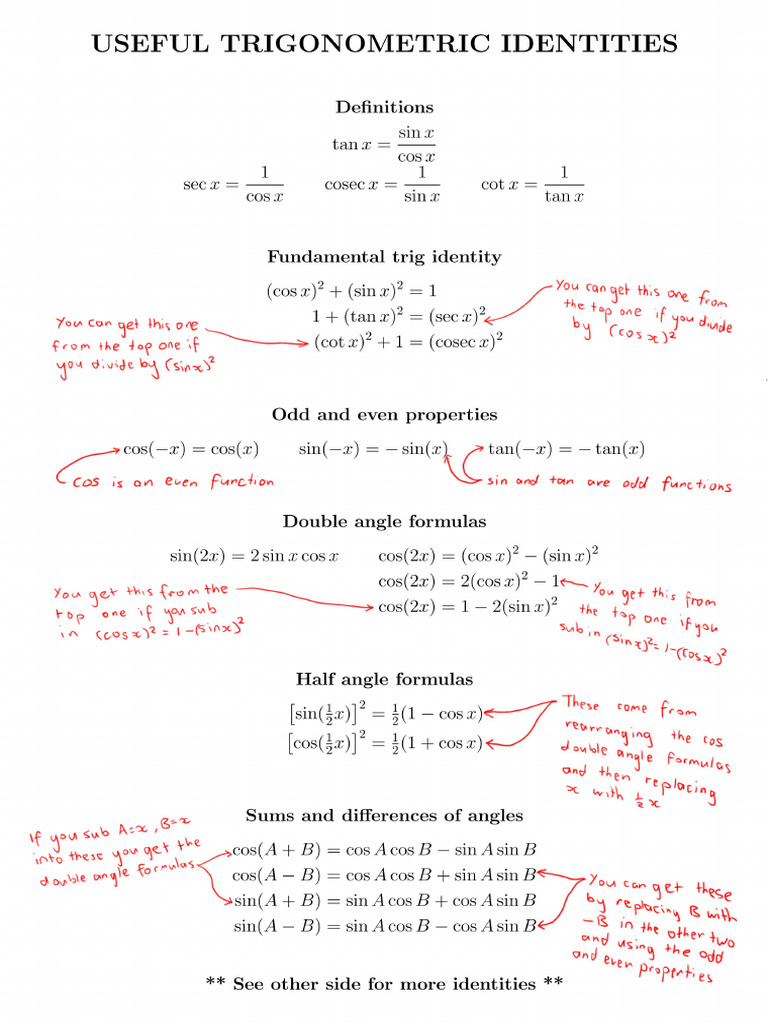 USEFUL TRIGONOMETRIC IDENTITIES
Definitions
tan x = sin x / cos x
sec x = 1 / cos x    cosec x = 1 / sin x    cot x = 1 / tan x
Fundamental trig identity
(cos x)² + (sin x)² = 1
1 + (tan x)² = (sec x)²
(cot x)² + 1 = (cosec x)²
You can get this one
from the top one if
you divide by (sinx)²
You can get this one from
the top one if you divide
by (cosx)²
Odd and even properties
cos(−x) = cos(x)    sin(−x) = − sin(x)    tan(−x) = − tan(x)
cos is an even function
sin and tan are odd functions
Double angle formulas
sin(2x) = 2 sin x cos x    cos(2x) = (cos x)² − (sin x)²
cos(2x) = 2(cos x)² − 1
cos(2x) = 1 − 2(sin x)²
You get this from the
top one if you sub
in (cosx)² = 1-(sinx)²
You get this from
the top one if you
sub in (sinx)² = 1-(cosx)²
Half angle formulas
[sin(½x)]² = ½(1 − cos x)
[cos(½x)]² = ½(1 + cos x)
These come from
rearranging the cos
double angle formulas
and then replacing
x with ½x
Sums and differences of angles
cos(A + B) = cos A cos B − sin A sin B
cos(A − B) = cos A cos B + sin A sin B
sin(A + B) = sin A cos B + cos A sin B
sin(A − B) = sin A cos B − cos A sin B
If you sub A=x, B=x
into these you get the
double angle formulas
You can get these
by replacing B with
-B in the other two
and using the odd
and even properties
** See other side for more identities **